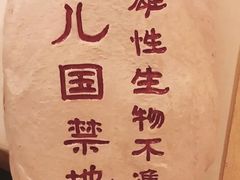 雄性生物不準
儿国禁地